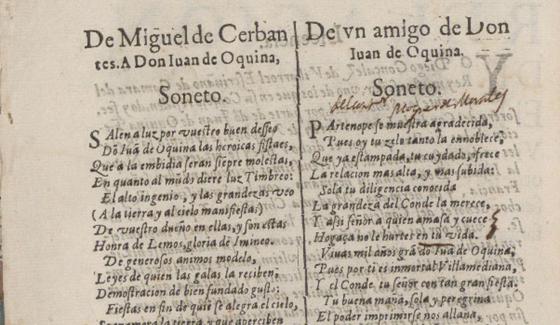 De Miguel de Cerban
tes. A Don Iuan de Oquina,
Soneto.
SAlen a luz por vuestro buen desseo
Dō Iuā de Oquina las heroicas fiestas,
Que a la embidia seran siēpre molestas,
En quanto al mūdo diere luz Timbreo:
El alto ingenio, y las grandezas veo
(A la tierra y al cielo manifiestas)
De vuestro dueño en ellas, y son estas
Honra de Lemos, gloria de Imineo.
De generosos animos modelo,
Leyes de quien las galas la reciben,
Demostracion de bien fundado gusto:
Fiestas en fin de quiē se alegra el cielo,
la tierra y que aperciben
De vn amigo de Don
Iuan de Oquina.
Soneto.
PArtenope se muestra agradecida,
Pues oy tu zelo tanto la ennoblece,
Que ya estampada, tu cuydado, ofrece
La relacion mas alta, y mas subida:
Sola tu diligencia conocida
La grandeza del Conde la merece,
Y assi señor a quien amasa y cuece
Hogaça no le hurten en tu vida.
Viuas mil años grā dō Iuā de Oquina,
Pues por ti es inmortal Villamediana,
Y el Conde tu señor con tan gran fiesta.
Tu buena maña, sola, y peregrina
El poder imprimirse nos allana,